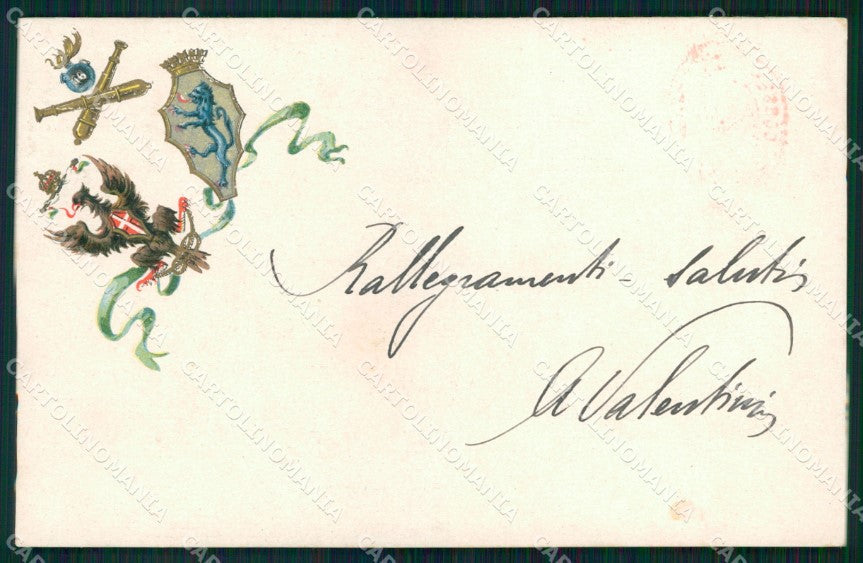 Rallegramenti - saluti
A Valentini
CARTOLINOMANIA